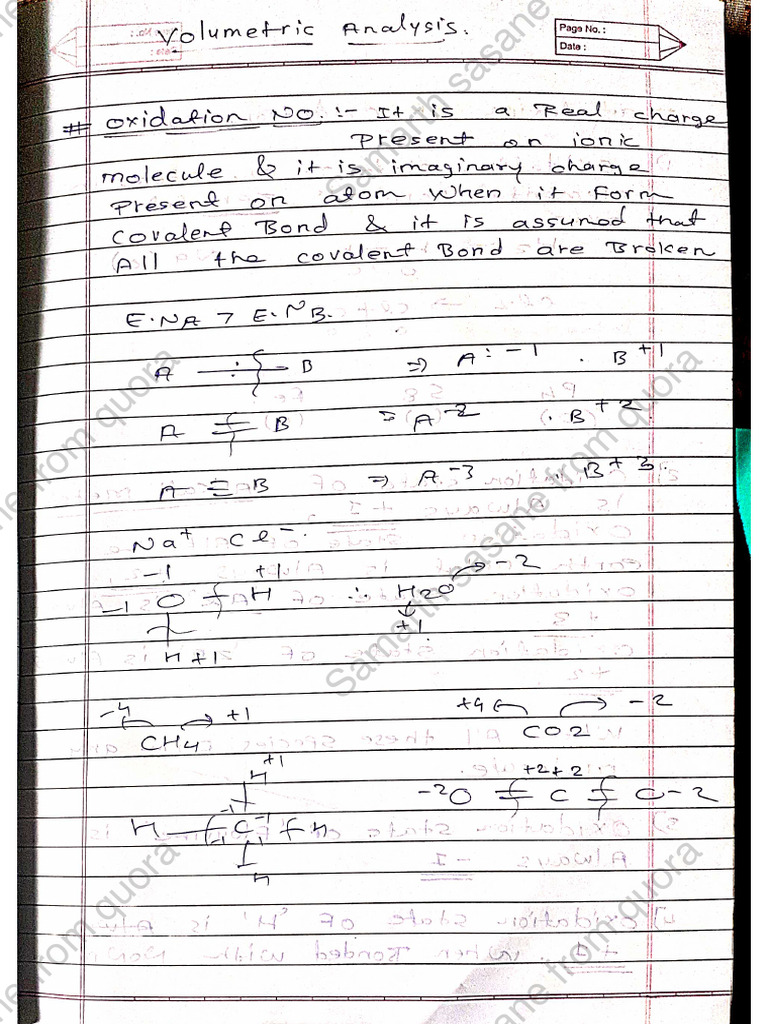 Volumetric Analysis.
Page No.:
Date:
# Oxidation No. :- It is a Real charge
Present on ionic
molecule & it is imaginary charge
Present on atom when it form
covalent Bond & it is assumed that
All the covalent Bond are Broken
E.NA > E.NB.
A —:— B ⇒ A: -1 . B+1
A = B ⇒ A-2 . B+2
A ≡ B ⇒ A-3 . B+3.
Na+ Cl-.
-1 +1
-1 O - H ∴ H2O → -2
+1
H +1
-4 +1 +4 -2
CH4 CO2
+1
H +2+2
-2O = C = C-2
H - C - H
-1 -1 -1 -1
H
Samarth sasane from quora